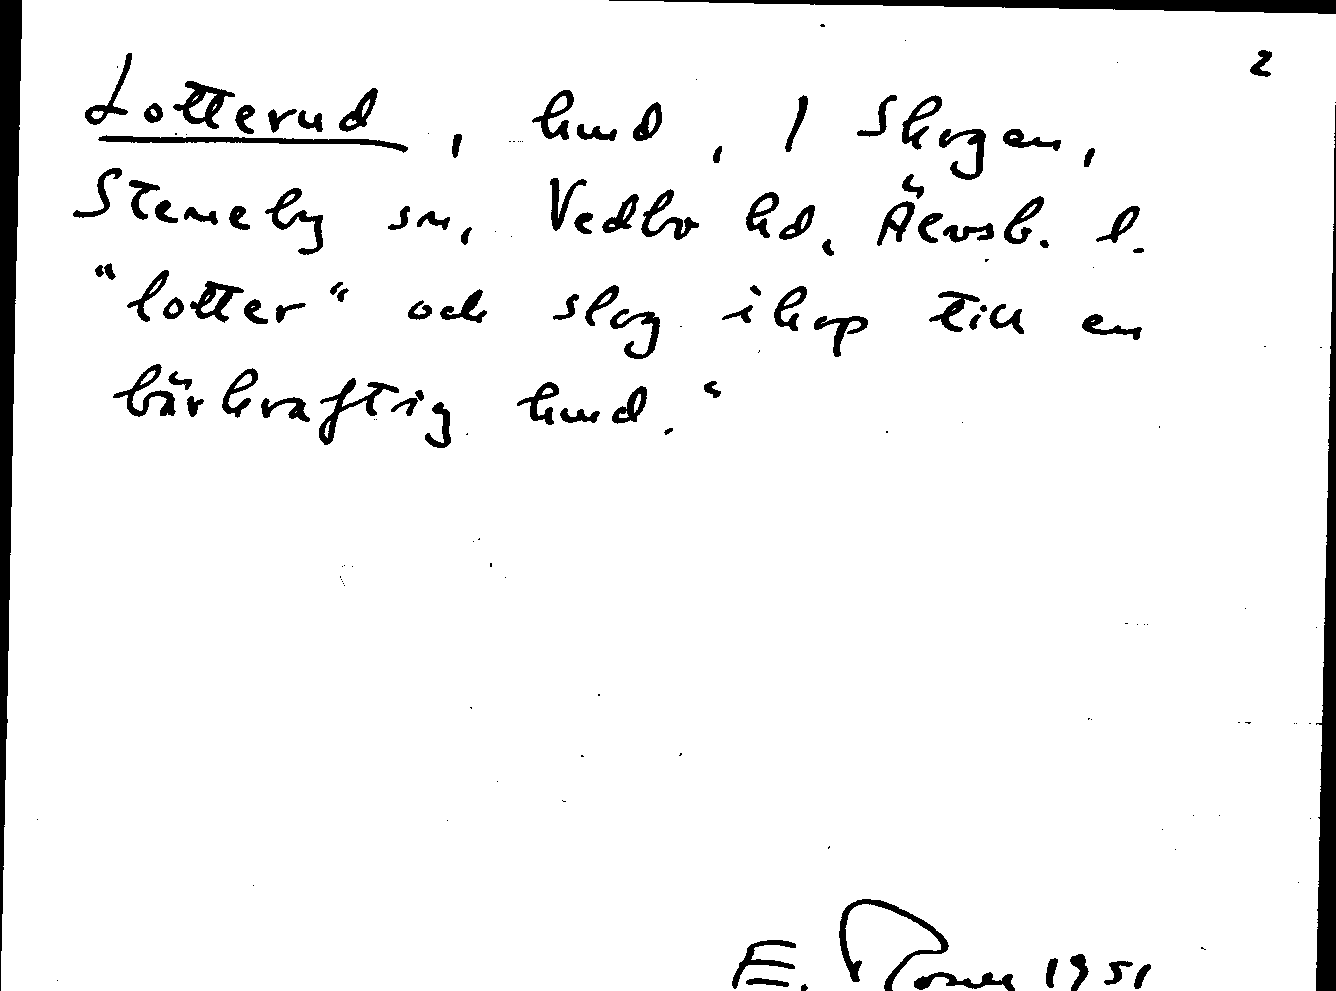 2
Lotterud, hmd, / Skogen,
Steneby sn, Vedbo hd, Älvsb. l.
"lotter" och slog ihop till en
bärkraftig hmd."
E. 1951